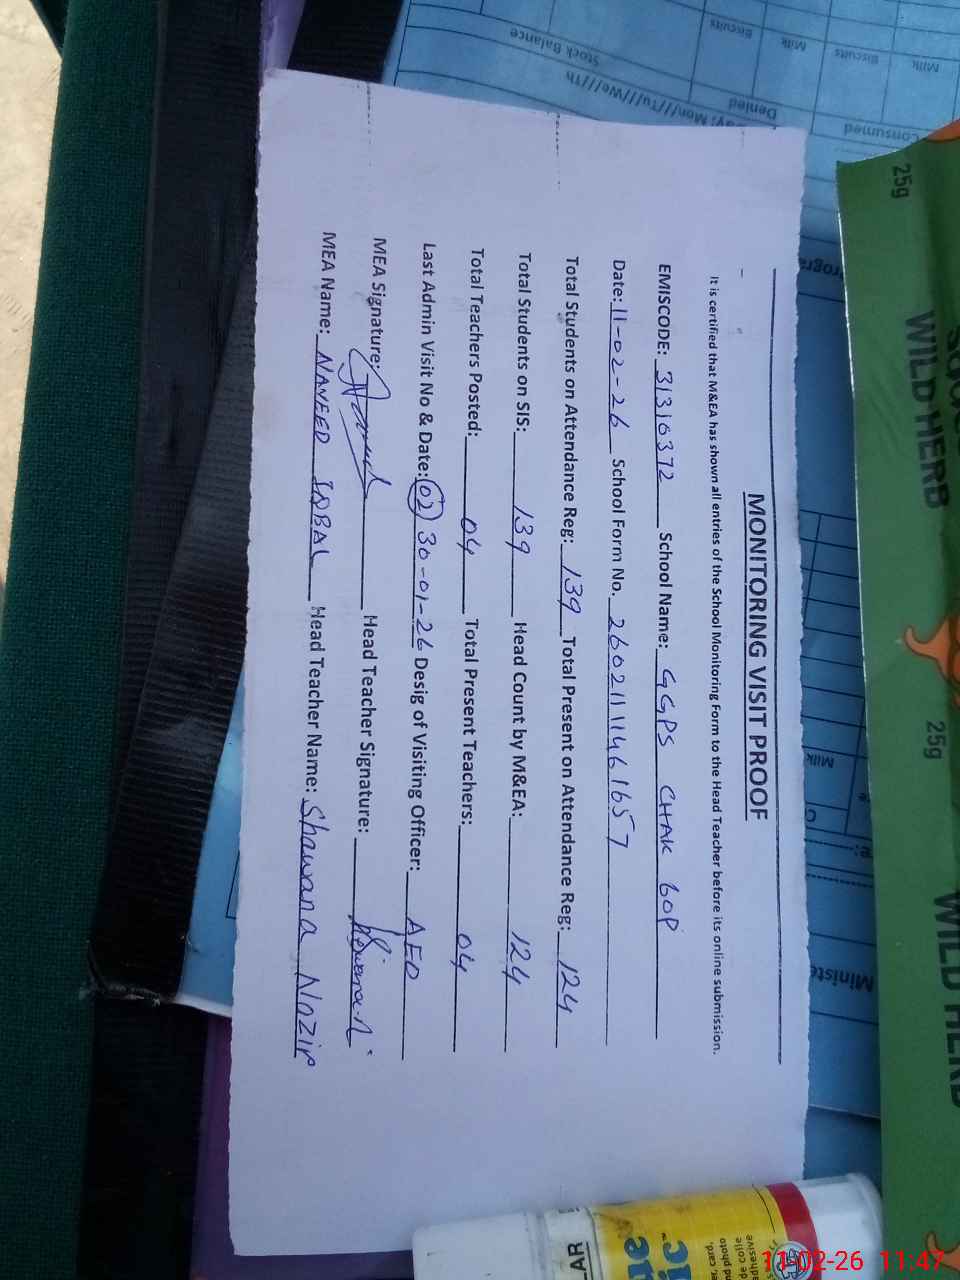 MONITORING VISIT PROOF
It is certified that M&EA has shown all entries of the School Monitoring Form to the Head Teacher before its online submission.
EMISCODE: 31316372 School Name: GGPS CHAK 60P
Date: 11-02-26 School Form No. 2602111461657
Total Students on Attendance Reg: 139 Total Present on Attendance Reg: 124
Total Students on SIS: 139 Head Count by M&EA: 124
Total Teachers Posted: 04 Total Present Teachers: 04
Last Admin Visit No & Date: 02 30-01-26 Desig of Visiting Officer: AEO
MEA Signature: Head Teacher Signature:
MEA Name: NAVEED IQBAL Head Teacher Name: Shawana Nazir
Stock Balance
Biscuits
Milk
Biscuits
Milk
Mon///Tu///We///Th
Denied
Consumed
Milk
25g
WILD HERB
25g
WILD HERB
11-02-26 11:47